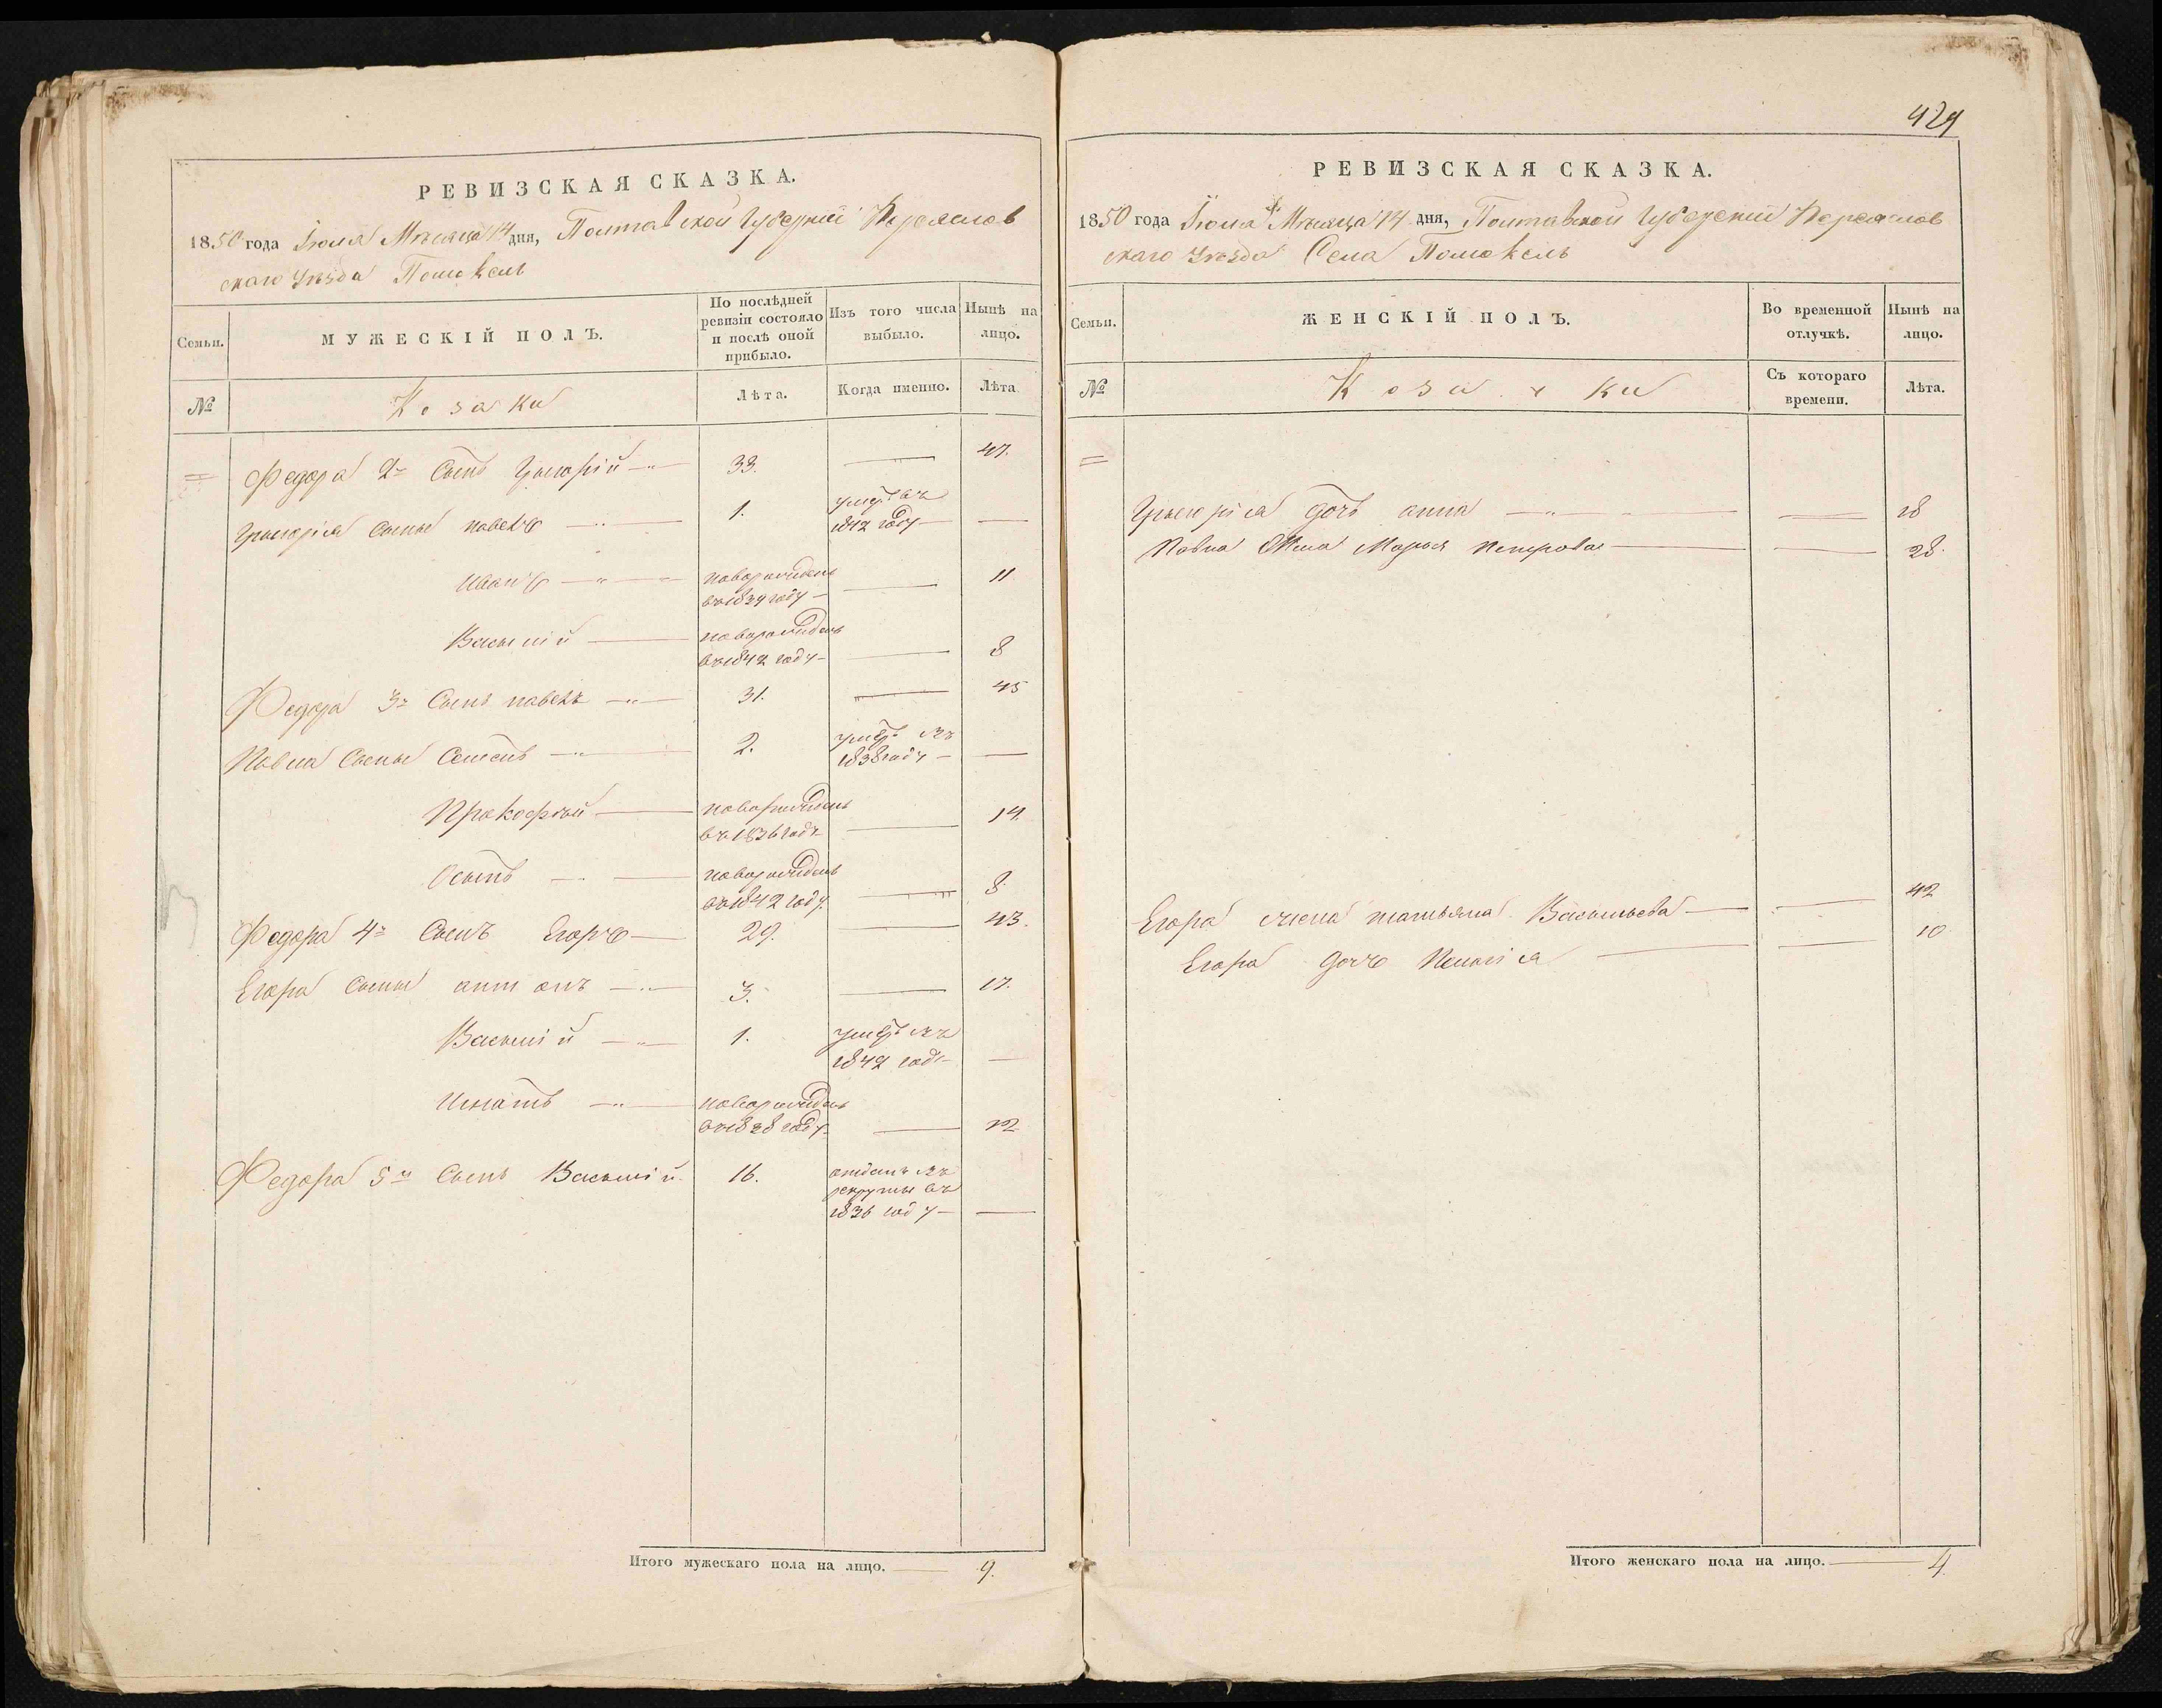 РЕВИЗСКАЯ СКАЗКА.
1850 года Іюля Мѣсяца 14 дня, Полтавской Губерніи Переяслов
скаго Уѣзда Помокель
Семьи.
МУЖЕСКІЙ ПОЛЪ.
По послѣдней ревизіи состояло и послѣ оной прибыло.
Изъ того числа выбыло.
Нынѣ на лицо.
№
Козаки
Лѣта.
Когда именно.
Лѣта.
Федора 2й Сынъ Григорій 33. 47.
Григорія Сыны павелъ 1. умеръ въ
1842 году
Иванъ новорожденъ 11
въ 1839 году
Василій новорожденъ
въ 1842 году 8
Федора 3й Сынъ павелъ 31. 45
Павла Сыны Семенъ 2. умеръ въ
1838 году
Прокофій новорожденъ 14.
въ 1836 году
Осипъ новорожденъ
въ 1842 году. 8.
Федора 4й Сынъ Егоръ 29. 43.
Егора Сыны антонъ 3. 17.
Василій 1. умеръ въ
1842 году
Игнатъ новорожденъ
въ 1838 году. 12
Федора 5й Сынъ Василій 16. отданъ въ
рекруты въ
1836 году
Итого мужескаго пола на лицо. 9.
429
РЕВИЗСКАЯ СКАЗКА.
1850 года Іюля Мѣсяца 14 дня, Полтавской Губерніи Переяслов
скаго Уѣзда Села Помокель
Семьи.
ЖЕНСКІЙ ПОЛЪ.
Во временной отлучкѣ.
Нынѣ на лицо.
№
Козачки
Съ котораго времени.
Лѣта.
Григорія дочь анна 18
Павла Жена Марья петрова 28.
Егора жена татьяна Васильева 42
Егора дочь 10
Итого женскаго пола на лицо. 4